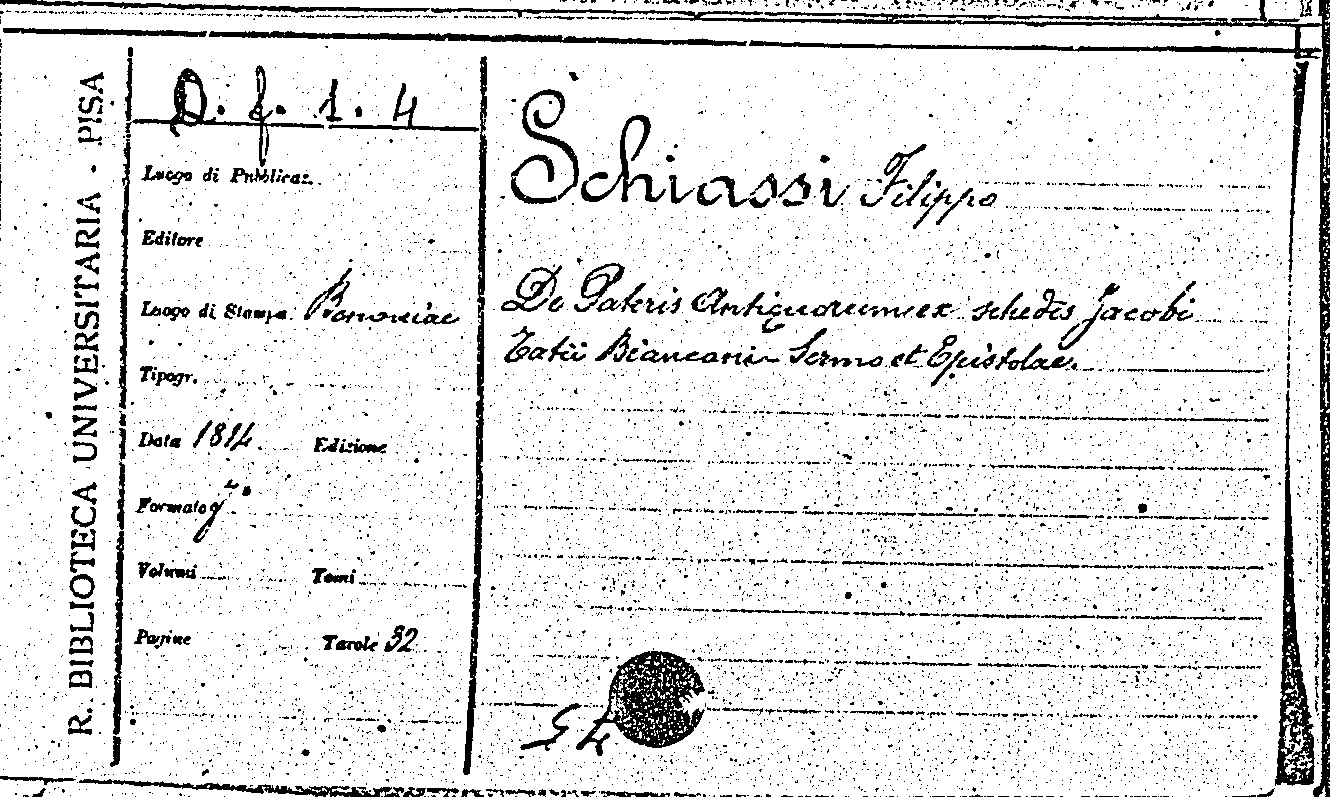 R. BIBLIOTECA UNIVERSITARIA - PISA
D. f. 1. 4
Luogo di Pubblicaz.
Editore
Luogo di Stampa Bononiae
Tipogr.
Data 1814 Edizione
Formato
Volumi Tomi
Pagine Tavole 32
Schiassi Filippo
De Pateris Antiquorum ex schedis Jacobi
Tatii Biancani Sermo et Epistolae.